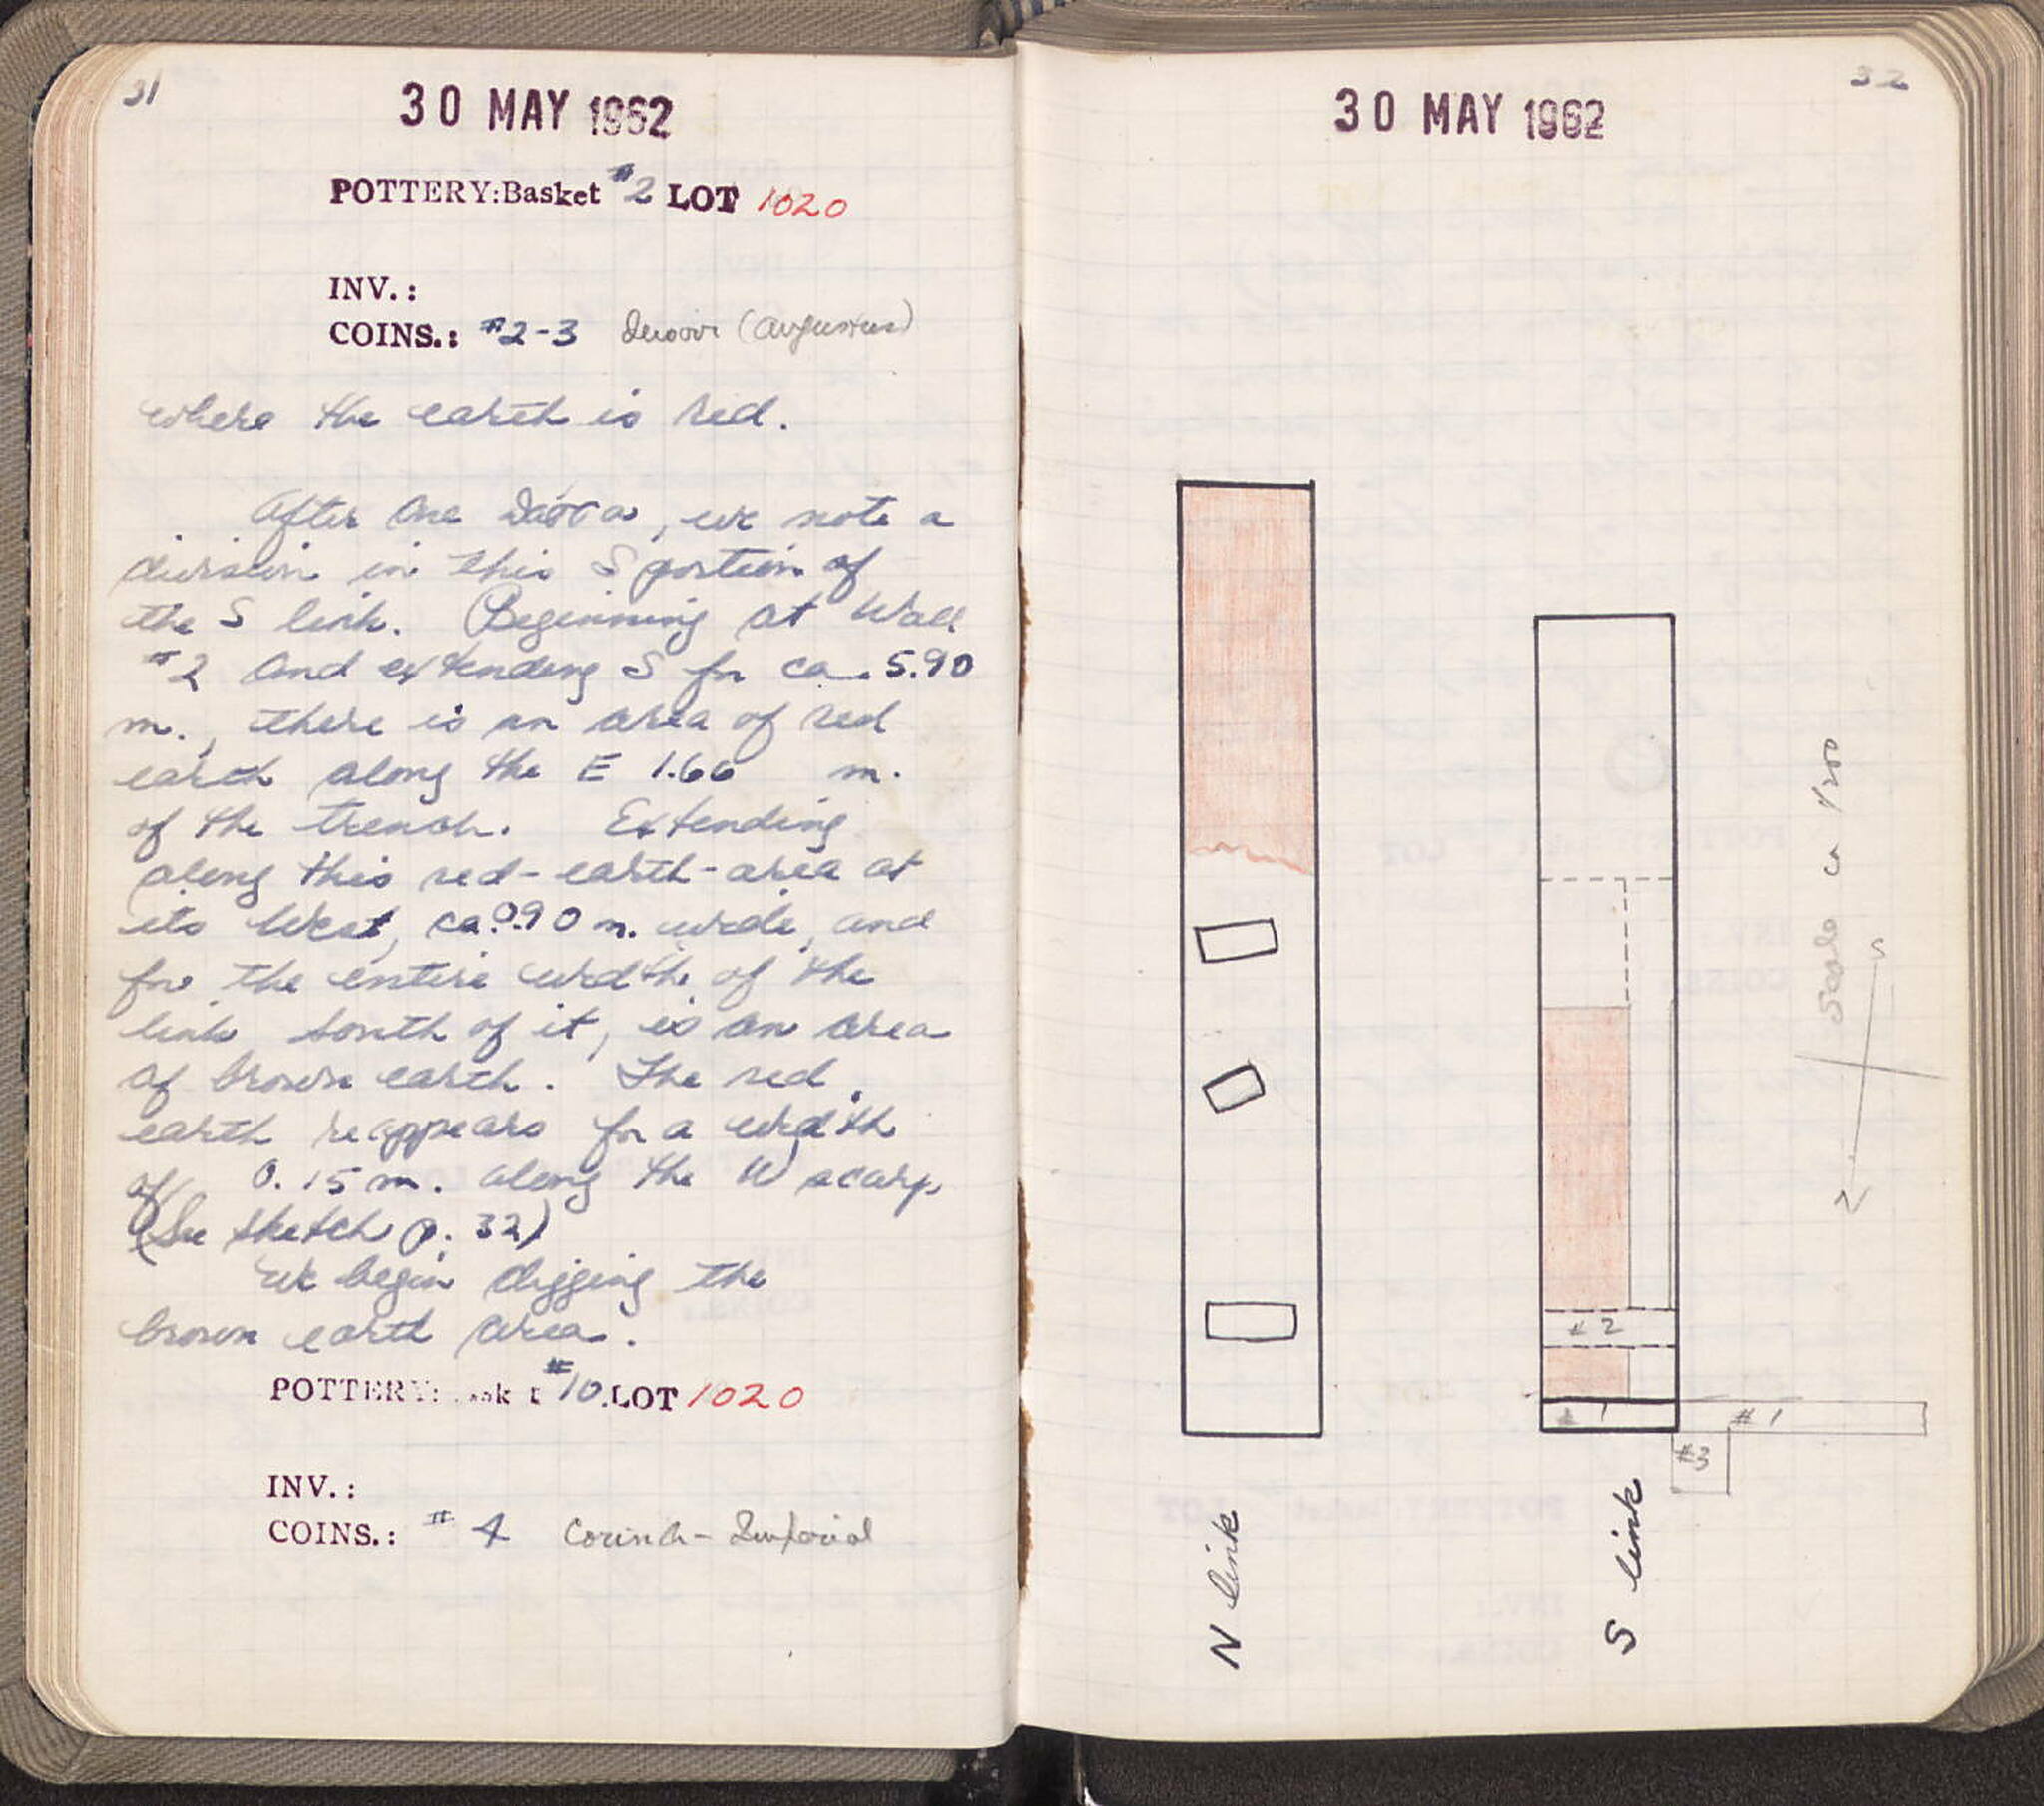 31
30 MAY 1962
POTTERY:Basket #2 LOT 1020
INV.:
COINS.: #2-3 (Augustus)
where the earth is red.
After one, we note a
division in this S portion of
the S link. Beginning at Wall
#2 and extending S for ca. 5.90
m., there is an area of red
earth along the E 1.66 m.
of the trench. Extending
along this red-earth-area at
its West, ca. 0.90 m. wide, and
for the entire width of the
link south of it, is an area
of brown earth. The red
earth reappears for a width
of 0.15 m. along the W scarp.
(See sketch p. 32)
We begin digging the
brown earth area.
POTTERY: #10 LOT 1020
INV.:
COINS.: #4 Corinth - Imperial
32
30 MAY 1962
Scale ca 1/100
S
N
#2
#1
#1
#3
N link
S link